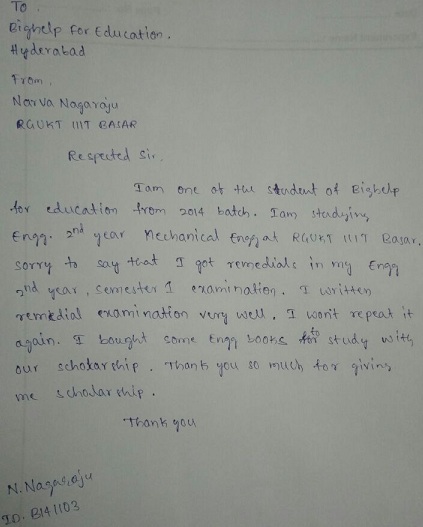 To,
Bighelp For Education.
Hyderabad
From,
Narva Nagaraju
RGUKT IIIT BASAR
Respected Sir,
Iam one of the student of Bighelp
for education from 2014 batch. Iam studying
Engg. 2nd year Mechanical Engg at RGUKT IIIT Basar.
sorry to say that I got remedials in my Engg
2nd year, semester 1 examination. I written
remedial examination very well. I won't repeat it
again. I bought some Engg books to study with
our scholarship. Thank you so much for giving
me scholarship.
Thank you
N. Nagaraju
ID. B141103